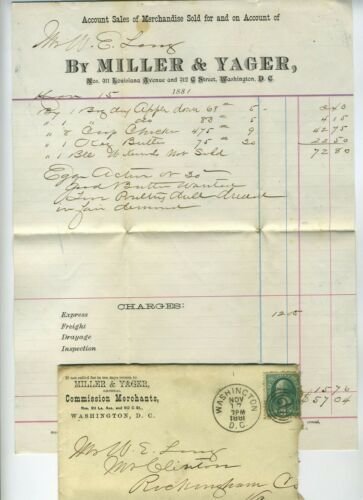 Account Sales of Merchandise Sold for and on Account of
Mr W. E. Long
By MILLER & YAGER,
Nos. 911 Louisiana Avenue and 912 C Street, Washington, D. C.
15 1881
By 1 Bag dry Apple 68 5 - 3.40
" 1 " do 83 5 - 4.15
" 8 Coop Chicken 475 9 42.75
" 1 Keg Butter 75 20
1 Bbl Not Sold 72.80
Eggs Active at 30
Good Butter Wanted
Poultry dull Dressed
in fair demand
CHARGES:
Express 12.5
Freight
Drayage
Inspection
15 76
$57 04
If not called for in ten days return to
MILLER & YAGER,
GENERAL
Commission Merchants,
Nos. 911 La. Ave. and 912 C St.,
WASHINGTON, D. C.
WASHINGTON
NOV
1881
D.C.
Mr W. E. Long
Mt Clinton
Rockingham Co